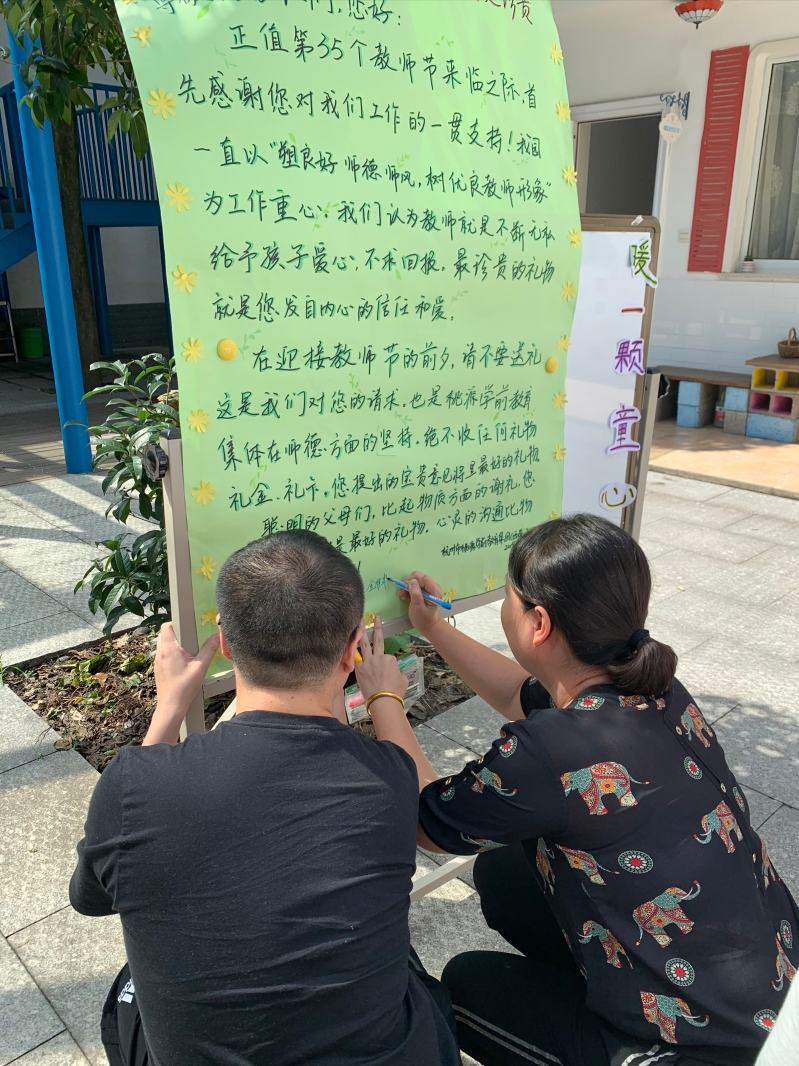 们,您好:
贵
正值第35个教师节来临之际,首
先感谢您对我们工作的一贯支持!我园
一直以“塑良好师德师风,树优良教师形象”
为工作重心。我们认为教师就是不断无私
给予孩子爱心,不求回报。最珍贵的礼物
就是您发自内心的信任和爱。
在迎接教师节的前夕,请不要送礼
这是我们对您的请求。也是桃源学前教育
集体在师德方面的坚持。绝不收任何礼物
礼金、礼卡。您提出的宝贵意见将是最好的礼物
聪明的父母们,比起物质方面的谢礼,您
是最好的礼物。心灵的沟通比物
杭州市
!
暖
一
颗
童
心